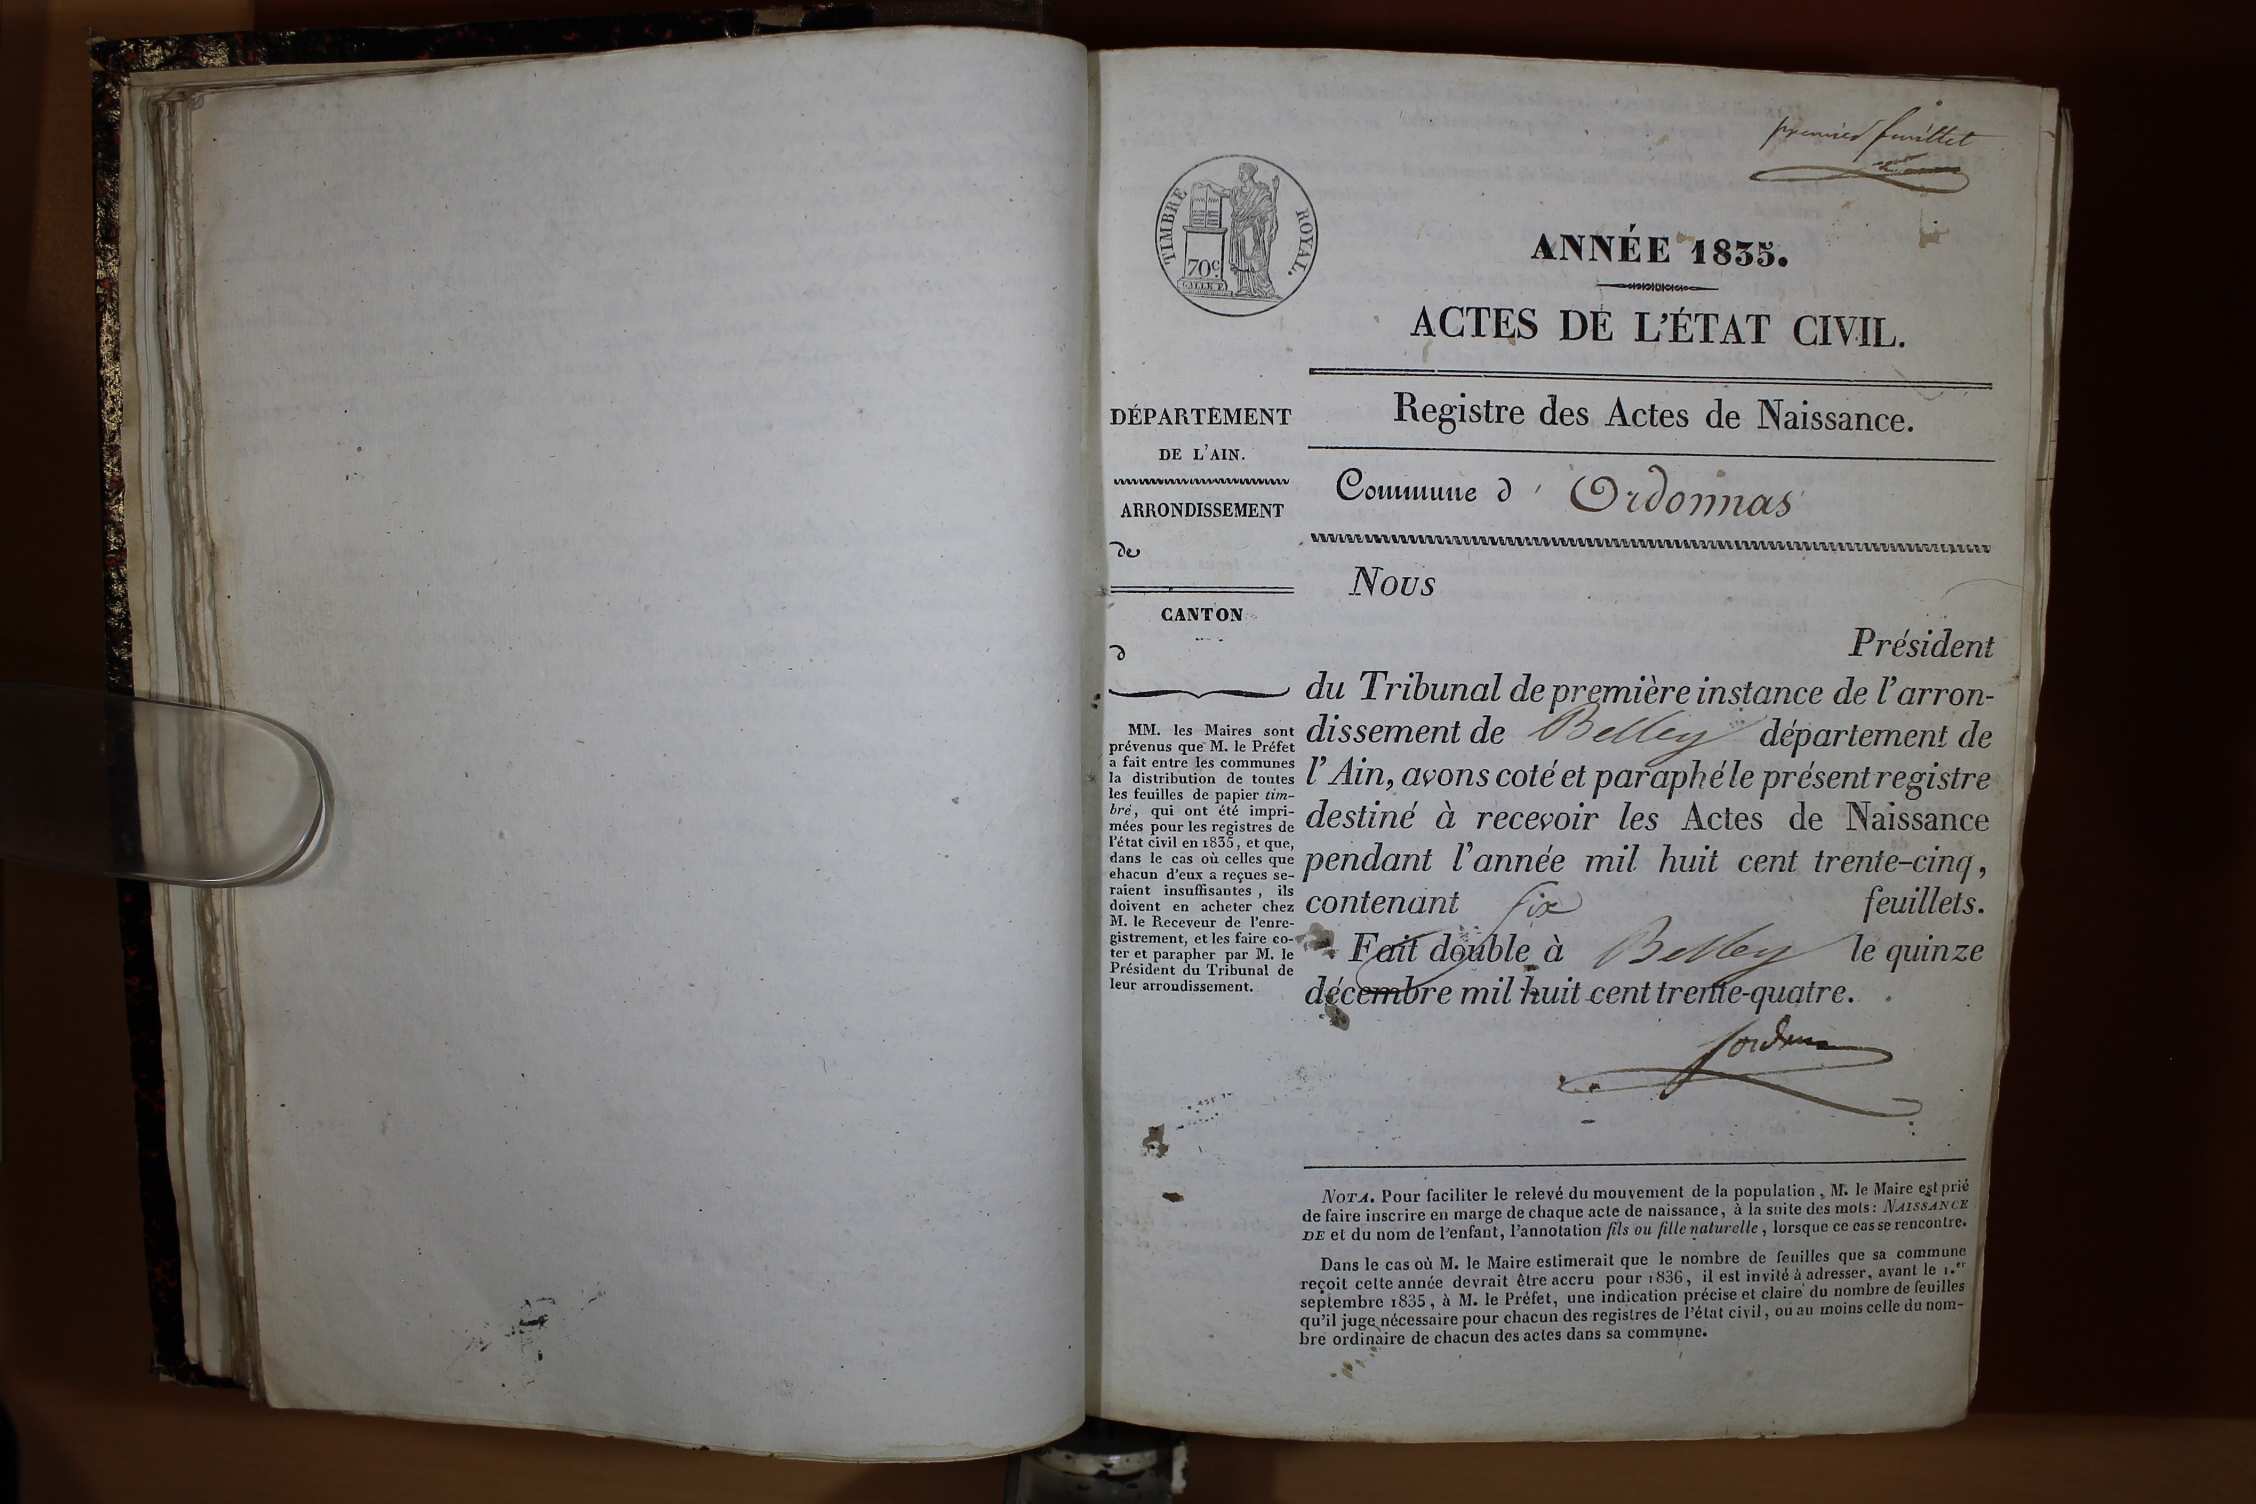 premier feuillet
TIMBRE ROYAL.
70c
ANNÉE 1835.
ACTES DE L'ÉTAT CIVIL.
DÉPARTEMENT
DE L'AIN.
ARRONDISSEMENT
de
CANTON
d
MM. les Maires sont
prévenus que M. le Préfet
a fait entre les communes
la distribution de toutes
les feuilles de papier tim-
bré, qui ont été impri-
mées pour les registres de
l'état civil en 1835, et que,
dans le cas où celles que
chacun d'eux a reçues se-
raient insuffisantes, ils
doivent en acheter chez
M. le Receveur de l'enre-
gistrement, et les faire co-
ter et parapher par M. le
Président du Tribunal de
leur arrondissement.
Registre des Actes de Naissance.
Commune d' Ordonnas
Nous
Président
du Tribunal de première instance de l'arron-
dissement de Belley département de
l'Ain, avons coté et paraphé le présent registre
destiné à recevoir les Actes de Naissance
pendant l'année mil huit cent trente-cinq,
contenant six feuillets.
Fait double à Belley le quinze
décembre mil huit cent trente-quatre.
NOTA. Pour faciliter le relevé du mouvement de la population, M. le Maire est prié
de faire inscrire en marge de chaque acte de naissance, à la suite des mots: NAISSANCE
DE et du nom de l'enfant, l'annotation fils ou fille naturelle, lorsque ce cas se rencontre.
Dans le cas où M. le Maire estimerait que le nombre de feuilles que sa commune
reçoit cette année devrait être accru pour 1836, il est invité à adresser, avant le 1.er
septembre 1835, à M. le Préfet, une indication précise et claire du nombre de feuilles
qu'il juge nécessaire pour chacun des registres de l'état civil, ou au moins celle du nom-
bre ordinaire de chacun des actes dans sa commune.